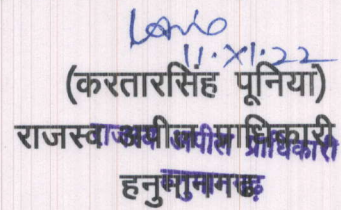 11.XI.22
(करतारसिंह पूनिया)
राजस्व अपील प्राधिकारी
राजस्व अपील प्राधिकारी
हनुमानगढ़
हनुमानगढ़